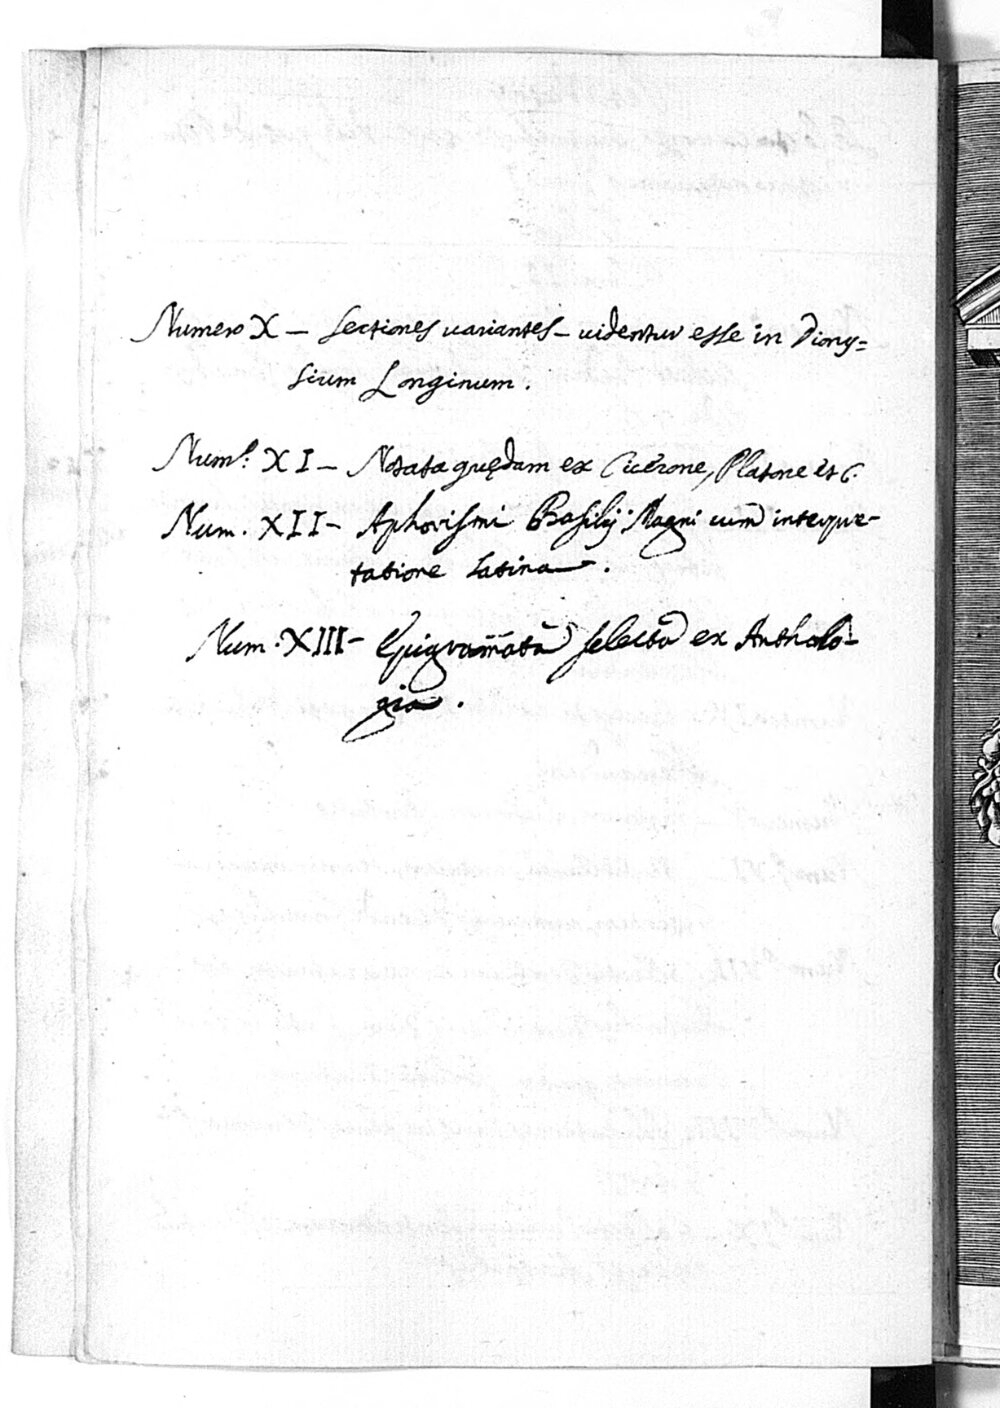 Numero X – Lectiones variantes – uidentur esse in Diony=
sium Longinum.
Num.º XI – Notata quędam ex Cicerone, Platone et c.
Num. XII – Aphorismi Basilij Magni cum interpre-
tatione Latina.
Num. XIII – Epigrammata selecta ex Antholo-
gia.